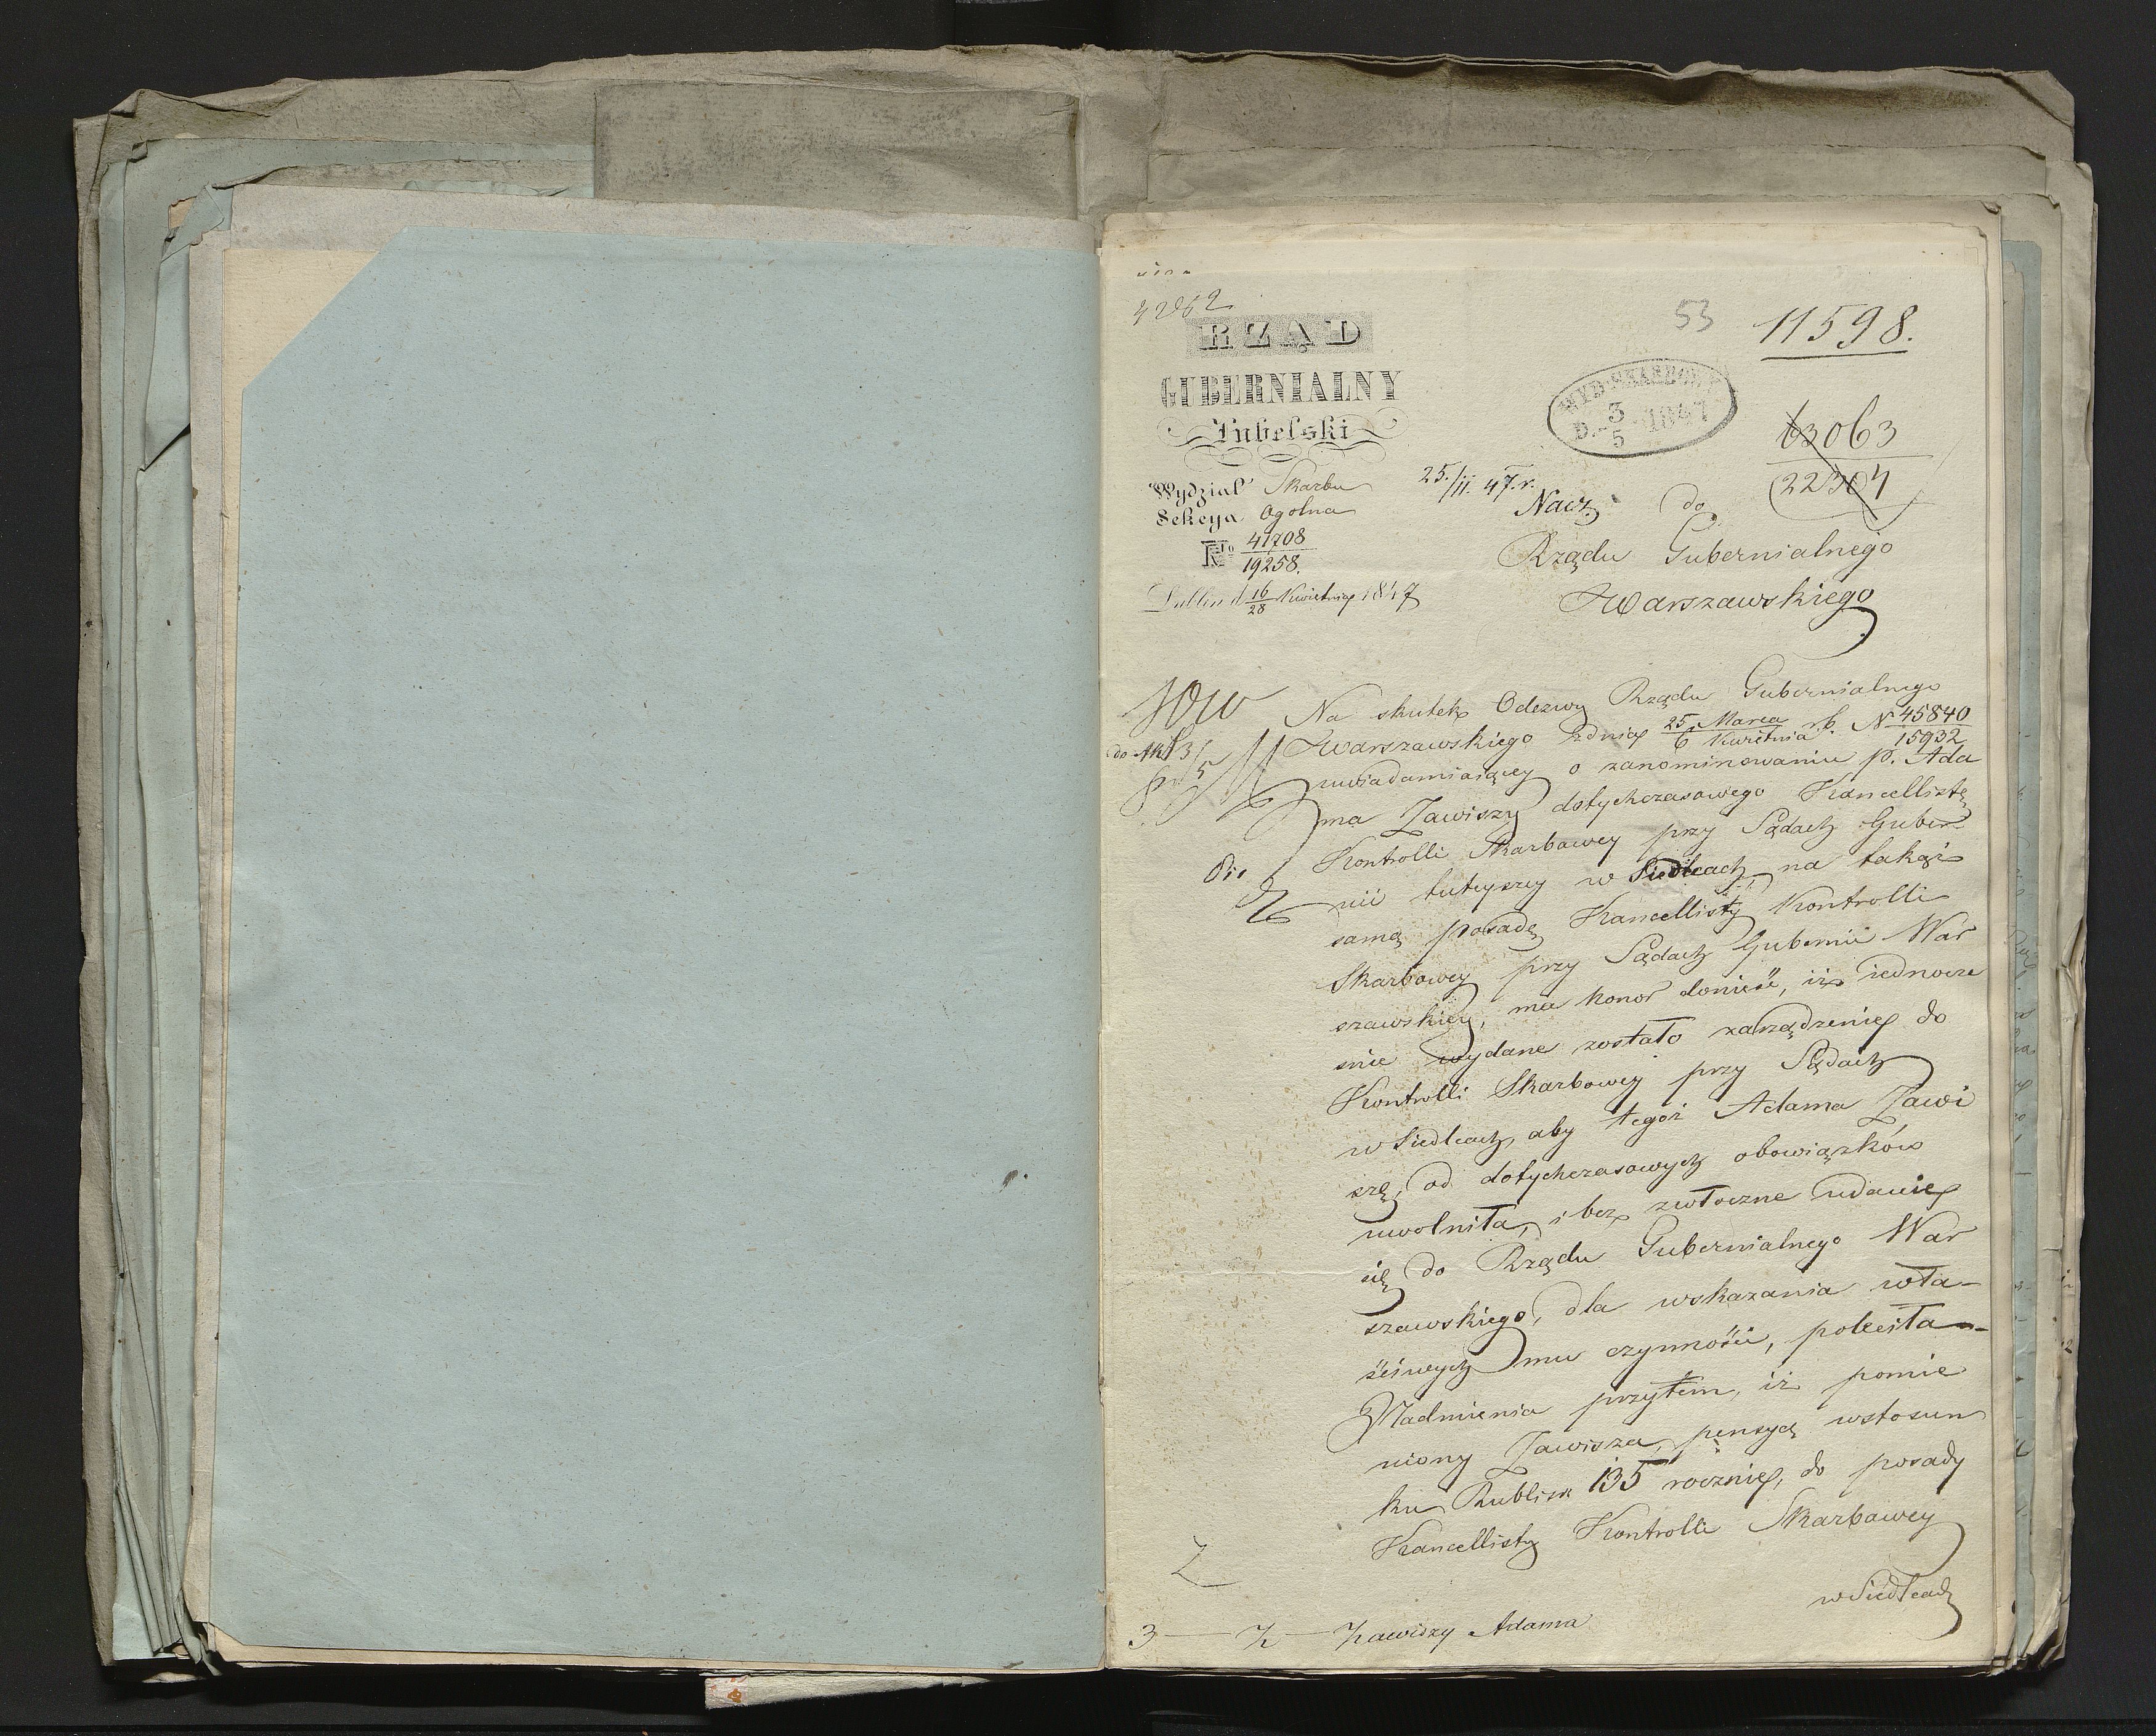 42862
53
11598.
RZĄD
GUBERNIALNY
Lubelski
WYD. SKARBOWY
D. 3/5 1847
63063
22304
Wydział Skarbu
Sekcya Ogolna
No 41708/19258.
Lublin d 16/28 Kwietnia 1847
25./II. 47.r.
Nacz. do
Rządu Gubernialnego
Warszawskiego
Na skutek Odezwy Rządu Gubernialnego
Warszawskiego z dnia 25 Marca/6 Kwietnia rb. N 45840/15932
uwiadamiaiącey o zanominowaniu p. Ada
ma Zawiszy dotychczasowego Kancellistę
Kontrolli Skarbowey przy Sądach Guber
nii tuteyszey w Siedlcach, na takąż
samą posadę Kancellisty Kontrolli
Skarbowey przy Sądach Gubernii War
szawskiey, ma honor donieść, iż iednocze
śnie wydane zostało zarządzenie do
Kontrolli Skarbowey przy Sądach
w Siedlcach, aby tegoż Adama Zawi
szę, od dotychczasowych obowiązków
uwolniła, i bez zwłoczne udanie
się do Rządu Gubernialnego War
szawskiego, dla wskazania wła-
ściwych mu czynności, poleciła
Nadmienia przytem, iż pomie
niony Zawisza, pensyą wstosun
ku Rublisr 135 rocznie, do posady
Kancellisty Kontrolli Skarbowey
w Siedlcach
do Akt 3/5
3 — Z — Zawiszy Adama